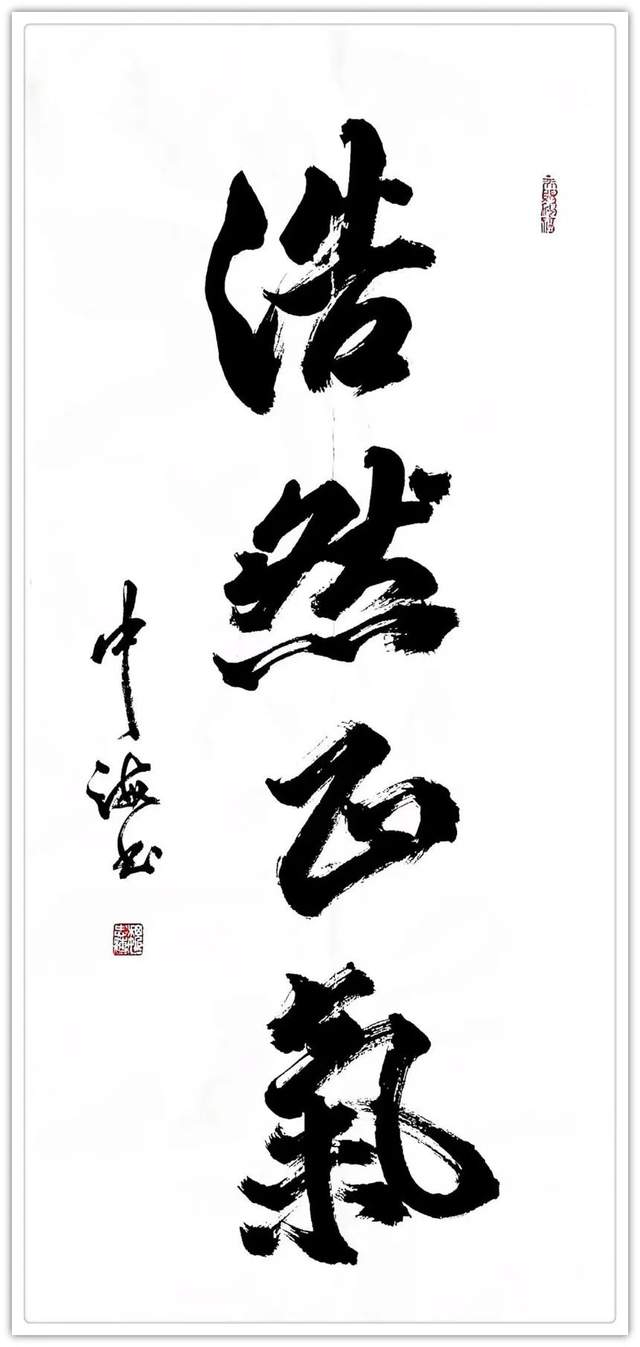 浩然正氣
中海书